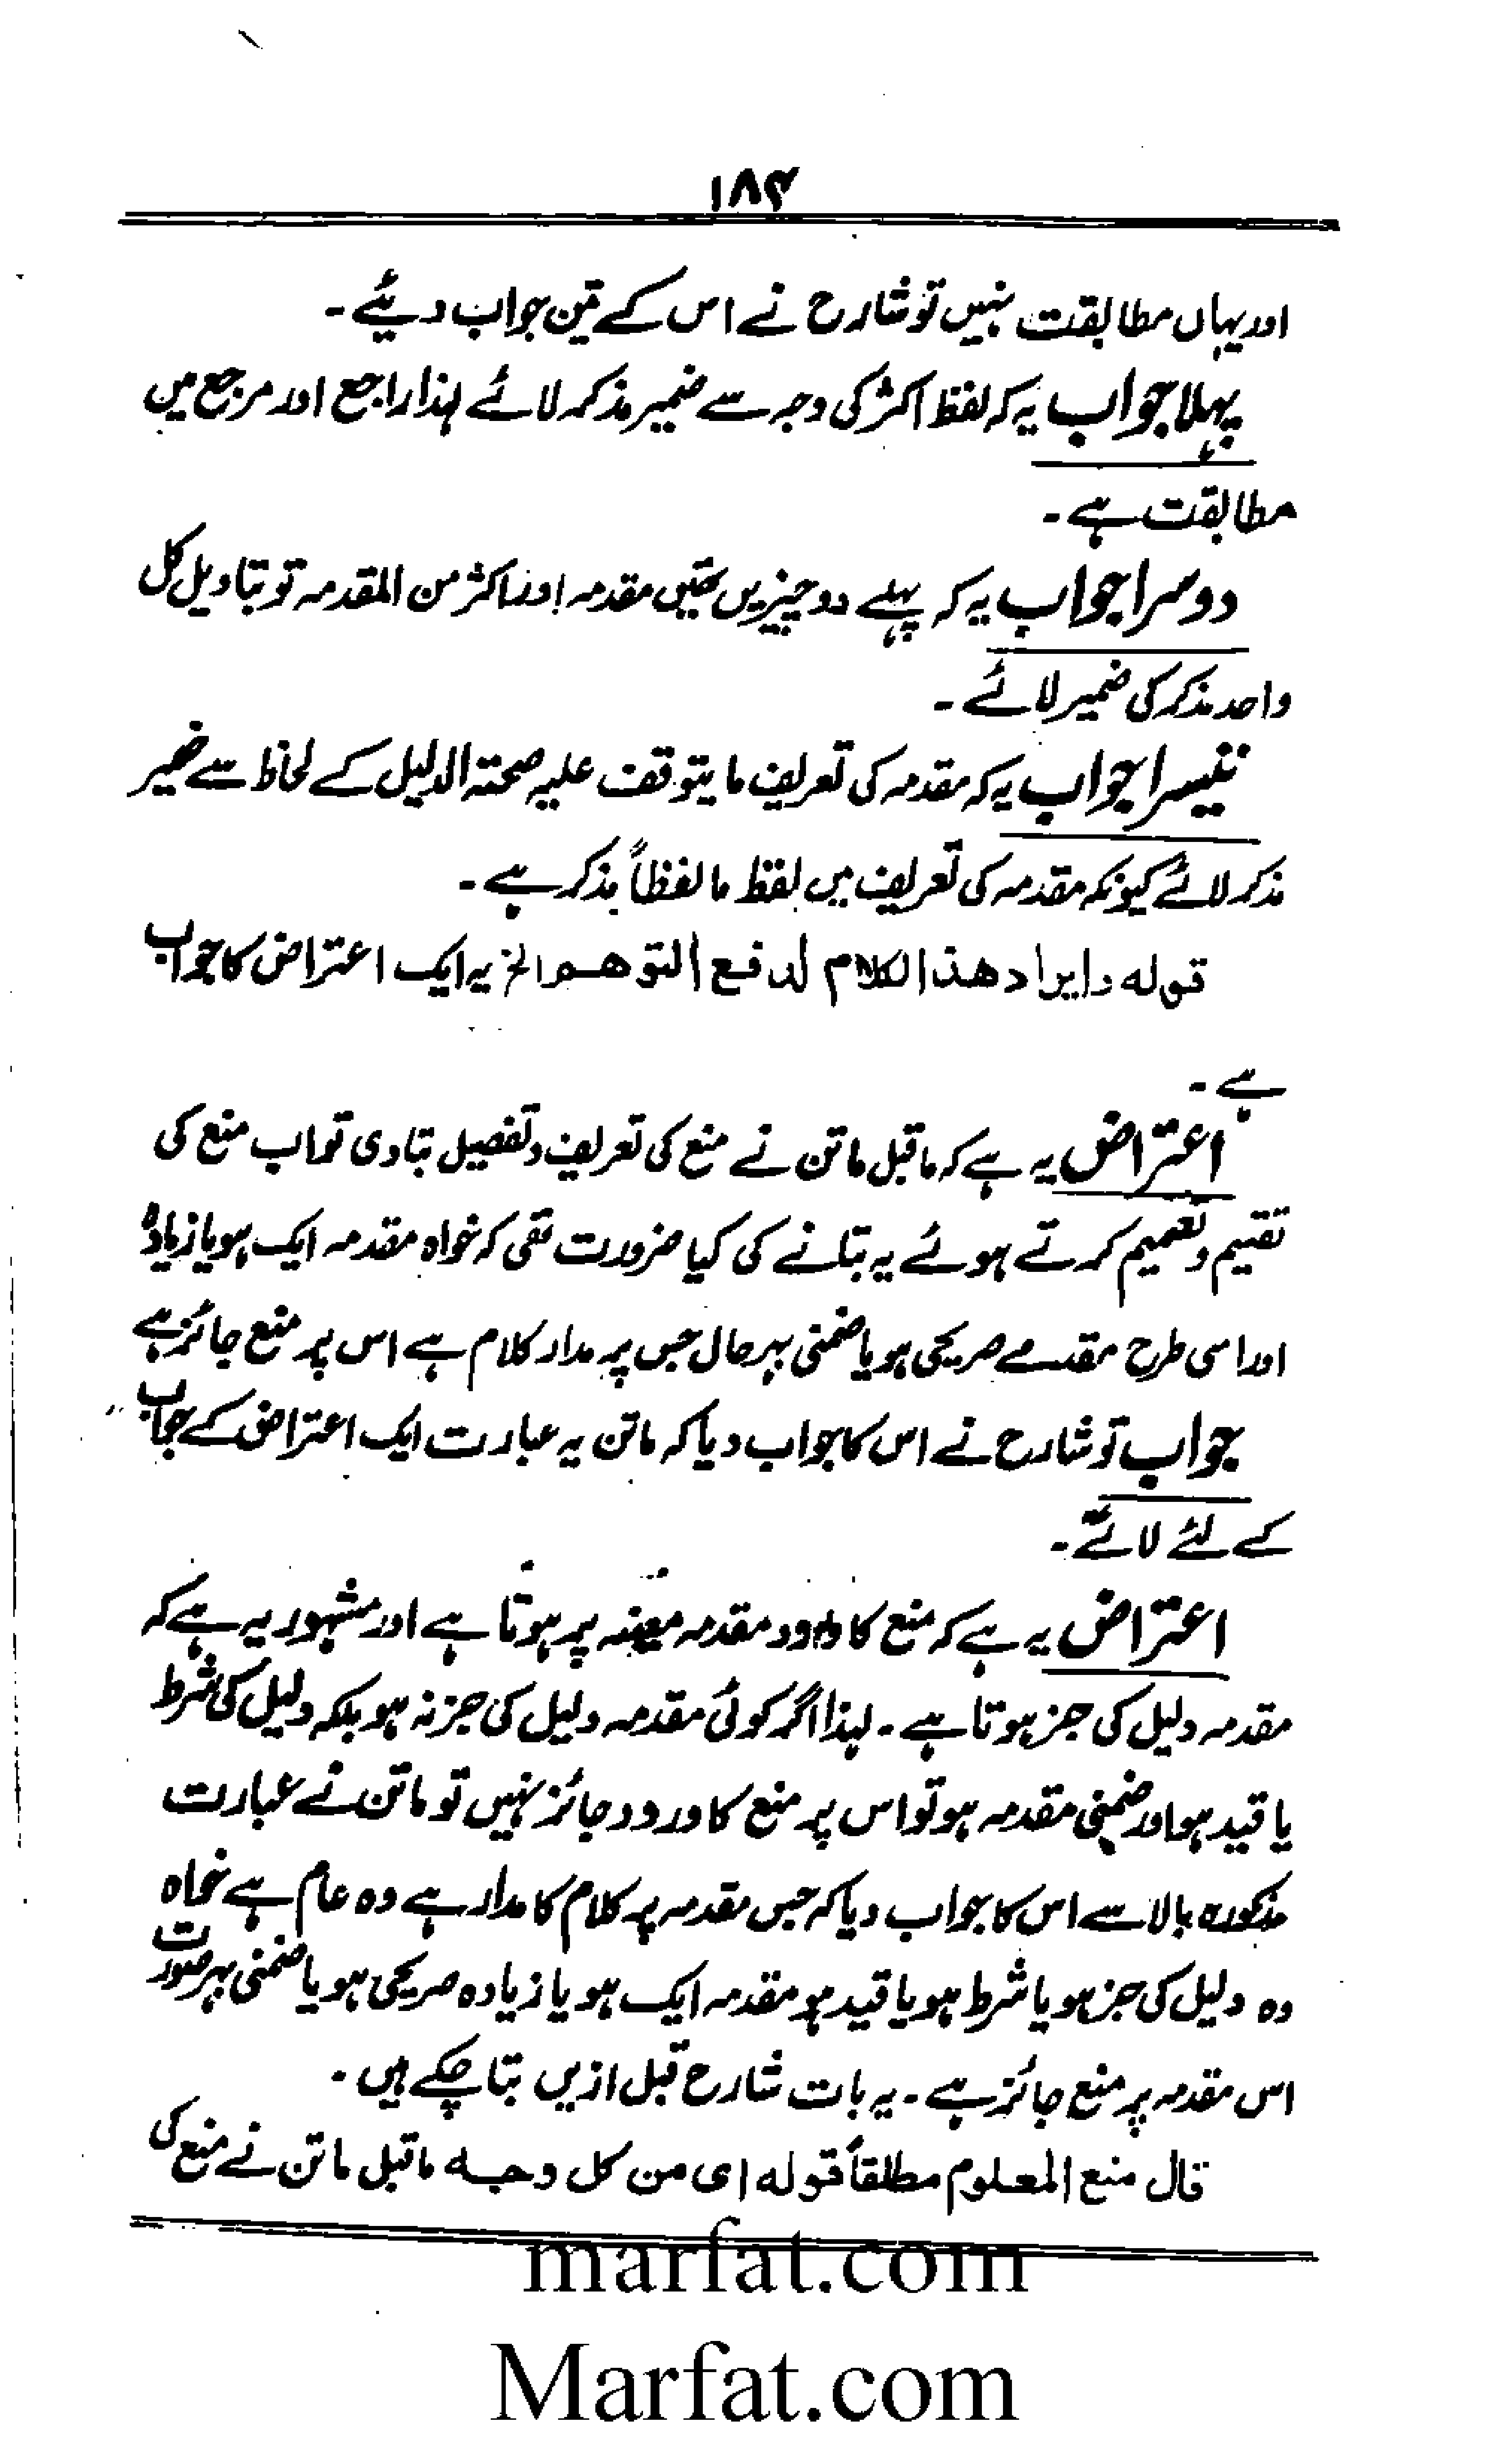 ۱۸۳
اور یہاں مطابقت نہیں تو شارح نے اس کے تین جواب دیئے۔
پہلا جواب یہ کہ لفظ اکثر کی وجہ سے ضمیر مذکر لائے لہذا راجع اور مرجع میں
مطابقت ہے۔
دوسرا جواب یہ کہ پہلے دو چیزیں تھیں مقدمہ اور اکثر من المقدمہ تو بتاویل کل
واحد مذکر کی ضمیر لائے۔
تیسرا جواب یہ کہ مقدمہ کی تعریف ما یتوقف علیہ صحتہ الدلیل کے لحاظ سے ضمیر
مذکر لائے کیونکہ مقدمہ کی تعریف میں لفظ ما لفظاً مذکر ہے۔
قولہ وایراد ھذا الکلام لدفع التوھم الخ یہ ایک اعتراض کا جواب
ہے۔
اعتراض یہ ہے کہ ماقبل ماتن نے منع کی تعریف وتفصیل بتا دی تو اب منع کی
تقیم و تعمیم کرتے ہوئے یہ بتانے کی کیا ضرورت تھی کہ خواہ مقدمہ ایک ہو یا زیادہ
اور اسی طرح مقدمے صریحی ہو یا ضمنی بہرحال جس پر مدار کلام ہے اس پر منع جائز ہے
جواب تو شارح نے اس کا جواب دیا کہ ماتن یہ عبارت ایک اعتراض کے جواب
کے لئے لائے۔
اعتراض یہ ہے کہ منع کا ورود مقدمہ معینہ پر ہوتا ہے اور مشہور یہ ہے کہ
مقدمہ دلیل کی جز ہوتا ہے۔ لہذا اگر کوئی مقدمہ دلیل کی جز نہ ہو بلکہ دلیل کی شرط
یا قید ہو اور ضمنی مقدمہ ہو تو اس پر منع کا ورود جائز نہیں تو ماتن نے عبارت
مذکورہ بالا سے اس کا جواب دیا کہ جس مقدمہ پر کلام کا مدار ہے وہ عام ہے خواہ
وہ دلیل کی جز ہو یا شرط ہو یا قید ہو مقدمہ ایک ہو یا زیادہ صریحی ہو یا ضمنی بہر صورت
اس مقدمہ پر منع جائز ہے۔ یہ بات شارح قبل ازیں بتا چکے ہیں۔
قال منع المعلوم مطلقاً قولہ ای من کل وجہ ماقبل ماتن نے منع کی
marfat.com
Marfat.com